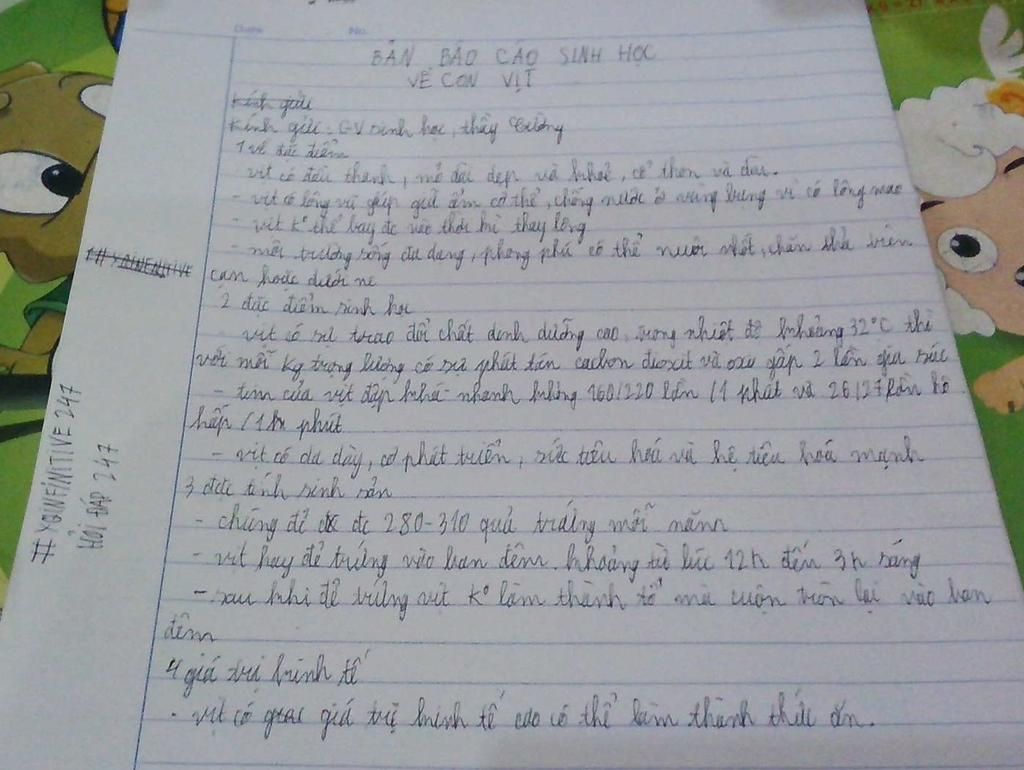 Date No.
BẢN BÁO CÁO SINH HỌC
VỀ CON VỊT
Kính gửi
Kính gửi: GV sinh học, thầy Cường
1 về đặc điểm
- vịt có đầu thanh, mỏ dài dẹp và khoẻ, cổ thon và dài.
- vịt có lông vũ giúp giữ ấm cơ thể, chống nước ở vùng bụng vì có lông mao
- vịt k° thể bay đc vào thời kì thay lông
- môi trường sống đa dạng, phong phú có thể nuôi nhốt, chăn thả trên
cạn hoặc dưới nc
2 đặc điểm sinh học
- vịt có sự trao đổi chất dinh dưỡng cao, trong nhiệt độ khoảng 32°C thì
với mỗi kg trọng lượng có sự phát tán cacbon đioxit và oxi gấp 2 lần gia súc
- tim của vịt đập khá nhanh khoảng 160/220 lần /1 phút và 26/27 lần hô
hấp /1 phút
- vịt có dạ dày, cơ phát triển, sức tiêu hoá và hệ tiêu hoá mạnh
3 đặc tính sinh sản
- chúng đẻ đc 280-310 quả trứng mỗi năm
- vịt hay đẻ trứng vào ban đêm khoảng từ lúc 12h đến 3h sáng
- sau khi đẻ trứng vịt k° làm thành tổ mà cuộn tròn lại vào ban
đêm
4 giá trị kinh tế
- vịt có giá trị kinh tế cao có thể làm thành thức ăn.
#XGINFINITIVE247
HỎI ĐÁP 247